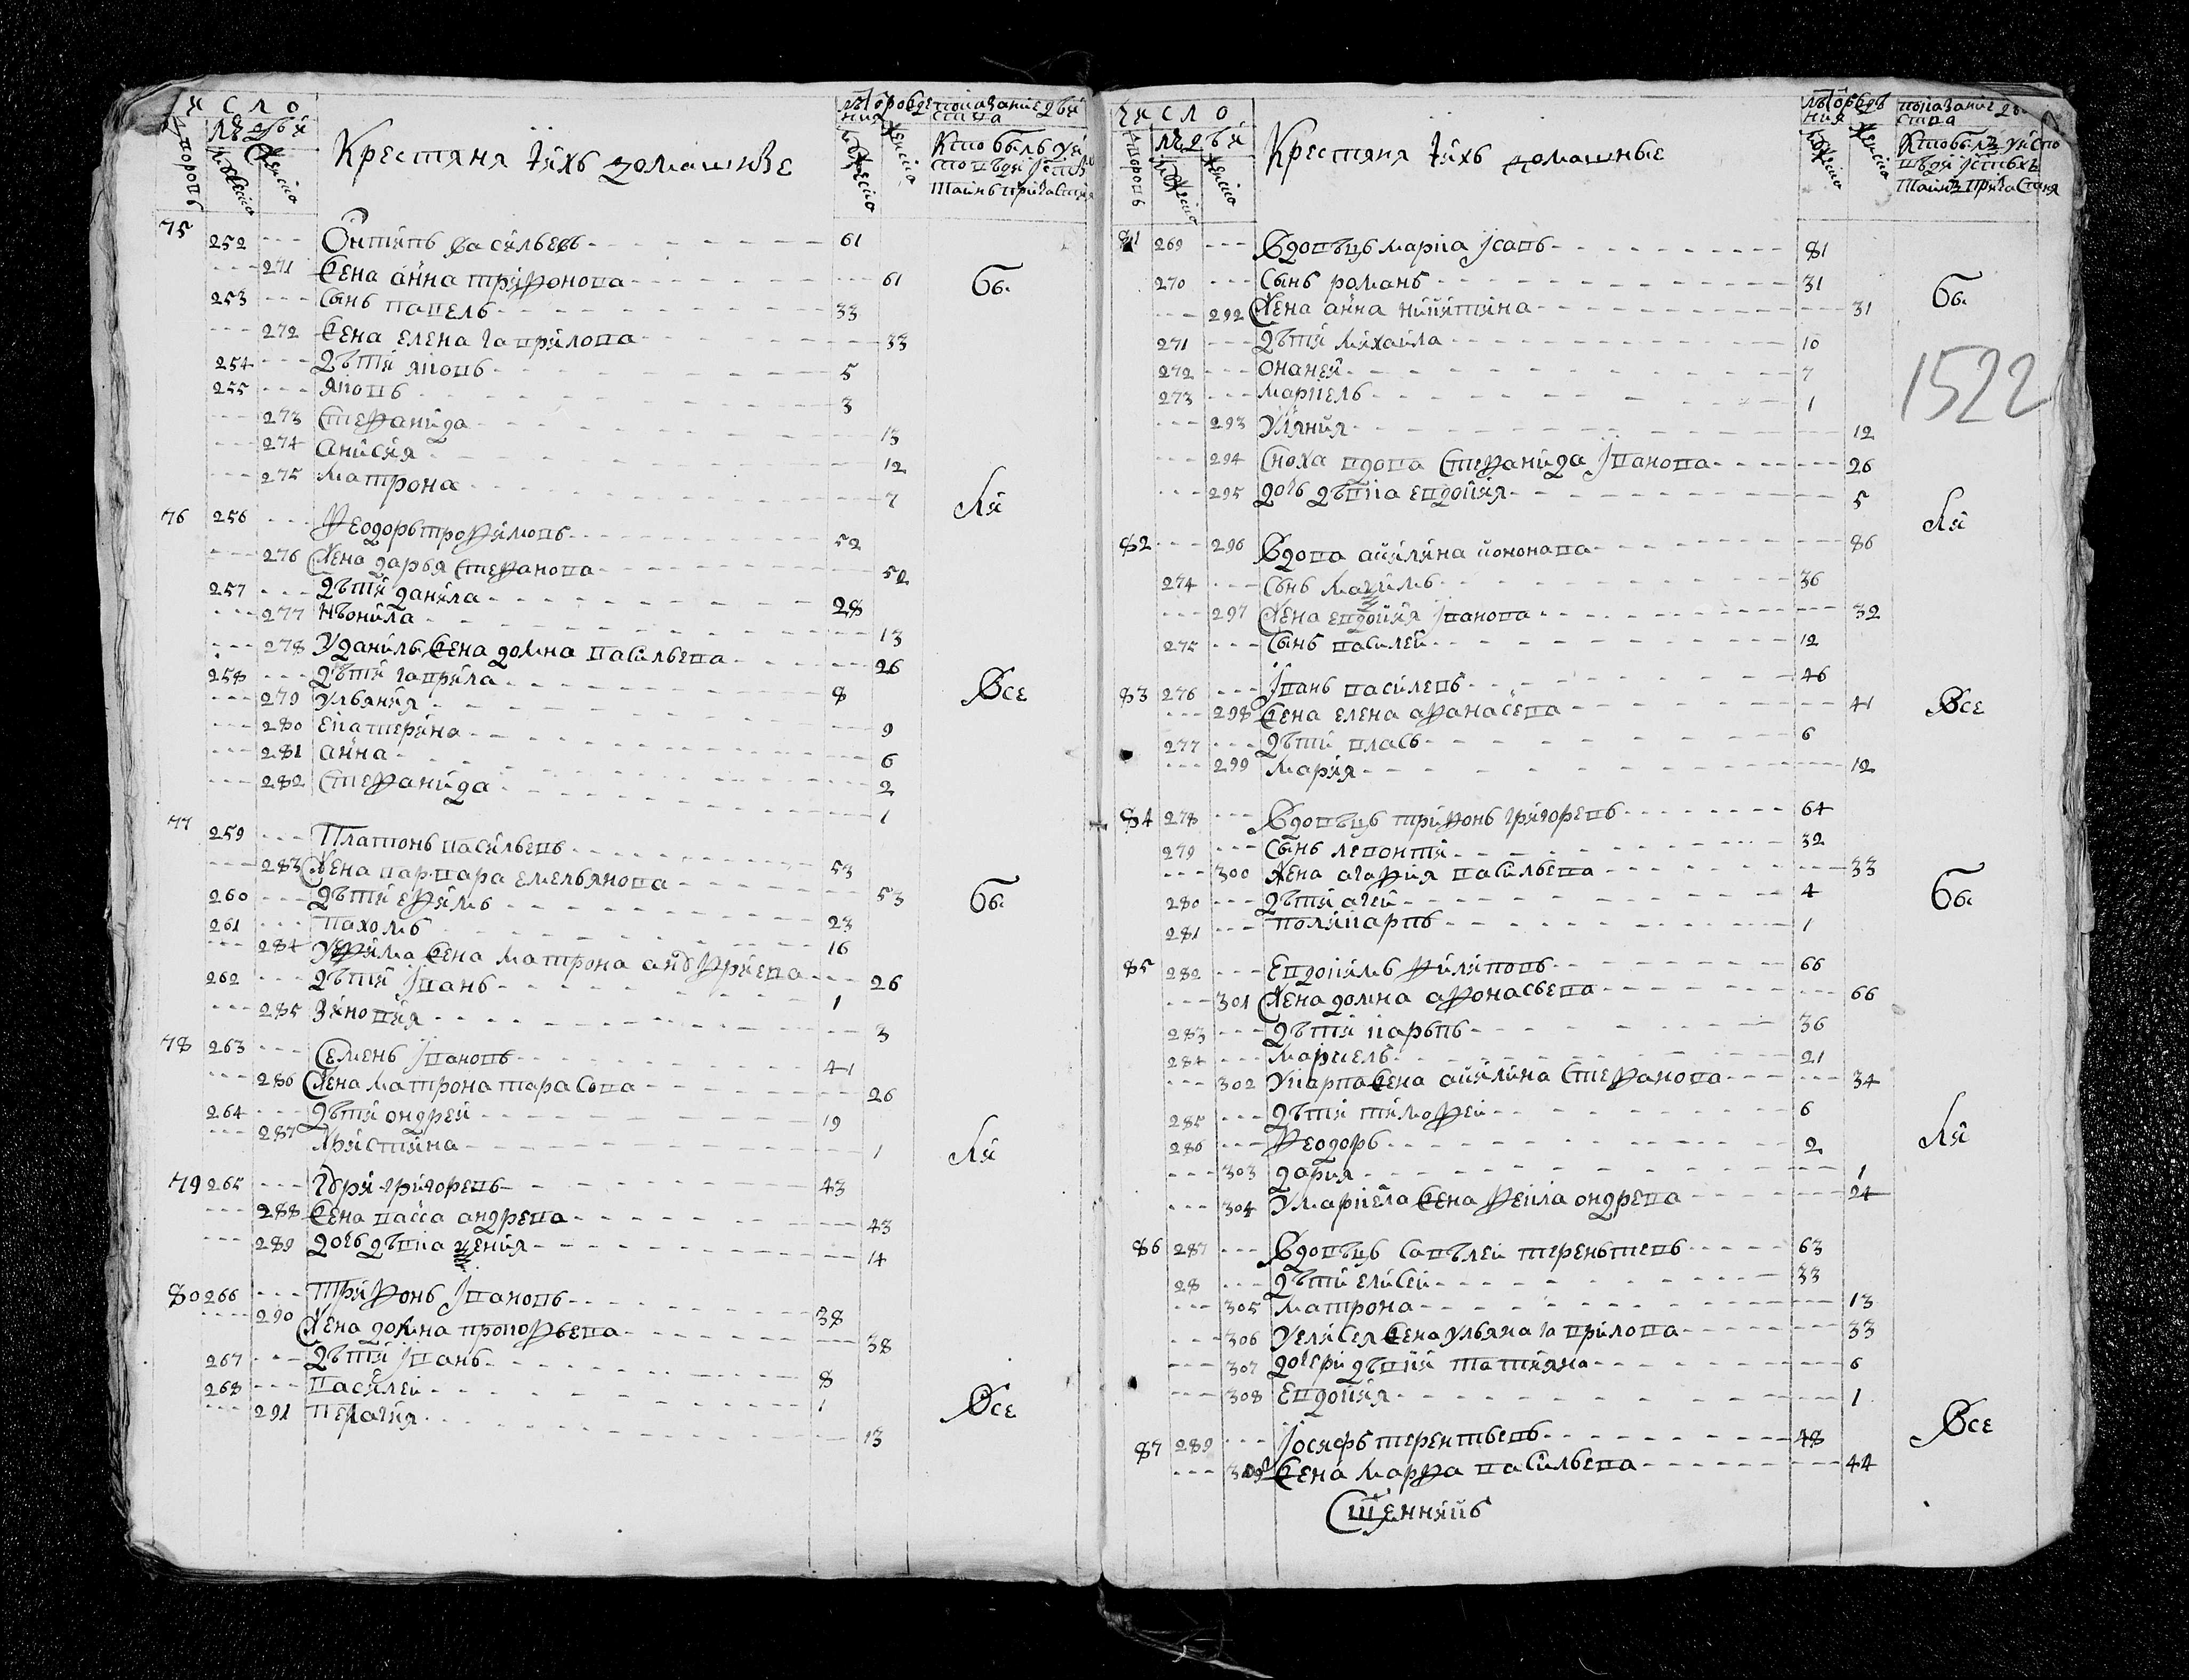 число
лѣторожде показание двя
людѣй
Крестяня ї ихъ домашние
Кто былъ у и
75
252 --- Онтипъ васильевъ 61
--- 271 Жена анна трифонова 61
253 --- Сынъ павелъ 33
--- 272 Жена елена гаврилова 33
254 --- Дѣти яковъ 5
255 --- яковъ 3
--- 273 Стефанида 13
--- 274 анисия 12
--- 275 матрона 7
76 256 --- Феодоръ трофимовъ 52
--- 276 Жена дарья стефанова 52
257 --- Дѣти данила 28
--- 277 нѣонила 13
--- 278 У данилы Жена домна васильева 26
258 --- Дѣти гаврила 8
--- 279 ульяния 9
--- 280 екатерина 6
--- 281 анна 2
--- 282 Стефанида 1
77
259 --- Платонъ васильевъ 53
--- 283 Жена варвара емельянова 53
260 --- Дѣти ефимъ 23
261 --- пахомъ 16
--- 284 У ефима Жена матрона ануфриева 26
262 --- Дѣти іванъ 1
--- 285 Зиновия 3
78 263 --- Семенъ івановъ 41
--- 286 Жена матрона тарасова 26
264 --- Дѣти ондрей 19
--- 287 Христина 1
79 265 --- Гури григоревъ 43
--- 288 Жена васса андрева 43
--- 289 дочь дѣвка ксения 14
80 266 --- Трифонъ івановъ 38
--- 290 Жена домна прокофьева 38
267 --- Дѣти іванъ 8
268 --- василей 1
--- 291 пелагия 13
бы
ли
Все
бы
ли
Все
число
людѣй
Крестяня ї ихъ домашные
81 269 --- Вдовѣцъ марка ісавъ 81
270 --- Сынъ романъ 31
--- 292 Жена анна никитина 31
271 --- Дѣти михаила 10
272 --- онаней 7
273 --- маркелъ 1
--- 293 Уляния 12
--- 294 Сноха вдова Стефанида іванова 26
--- 295 дочь дѣвка евдокия 5
82 --- 296 Вдова акилина кононова 86
274 --- Сынъ макимъ 36
--- 297 Жена евдокия іванова 32
275 --- Сынъ василей 12
83 276 --- іванъ василевъ 46
--- 298 Жена елена афанасева 41
277 --- Дѣти власъ 6
--- 299 мария 12
84 278 --- Вдовѣцъ трифонъ григоревъ 64
279 --- Сынъ левонти 32
--- 300 Жена агафия васильева 33
280 --- Дѣти агей 4
281 --- поликарпъ 1
85 282 --- Евдокимъ филиповъ 66
--- 301 Жена домна афонасьева 66
283 --- Дѣти карьпъ 36
284 --- маркелъ 21
--- 302 У карпа Жена акилина Стефанова 34
285 --- Дѣти тимофей 6
286 --- Феодоръ 2
--- 303 дария 1
--- 304 У маркела Жена фекла ондрева 24
86 287 --- Вдовѣцъ савѣлей тереньтевъ 63
28 --- Дѣти елисей 33
--- 305 матрона 13
--- 306 У елисея Жена ульяна гаврилова 33
--- 307 дочери дѣвки татияна 6
--- 308 Евдокия 1
87 289 --- іосифъ терентьевъ 48
--- 309 Жена марфа васильева 44
бы
1522
ли
Все
бы
ли
Все
Сщенникъ